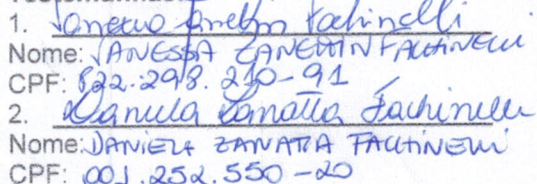 1. Vanessa Zanettin Fachinelli
Nome: VANESSA ZANETTIN FACHINELLI
CPF: 822.298.210-91
2. Daniela Zanatta Fachinelli
Nome: DANIELA ZANATTA FACHINELLI
CPF: 001.252.550-20